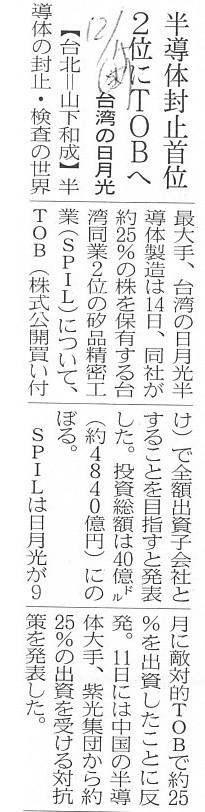 半導体封止首位
2位にTOBへ
台湾の日月光
【台北=山下和成】半
導体の封止・検査の世界
最大手、台湾の日月光半
導体製造は14日、同社が
約25%の株を保有する台
湾同業2位の矽品精密工
業(SPIL)について、
TOB(株式公開買い付
け)で全額出資子会社と
することを目指すと発表
した。投資総額は40億㌦
(約4840億円)にの
ぼる。
SPILは日月光が9
月に敵対的TOBで約25
%を出資したことに反
発。11日には中国の半導
体大手、紫光集団から約
25%の出資を受ける対抗
策を発表した。